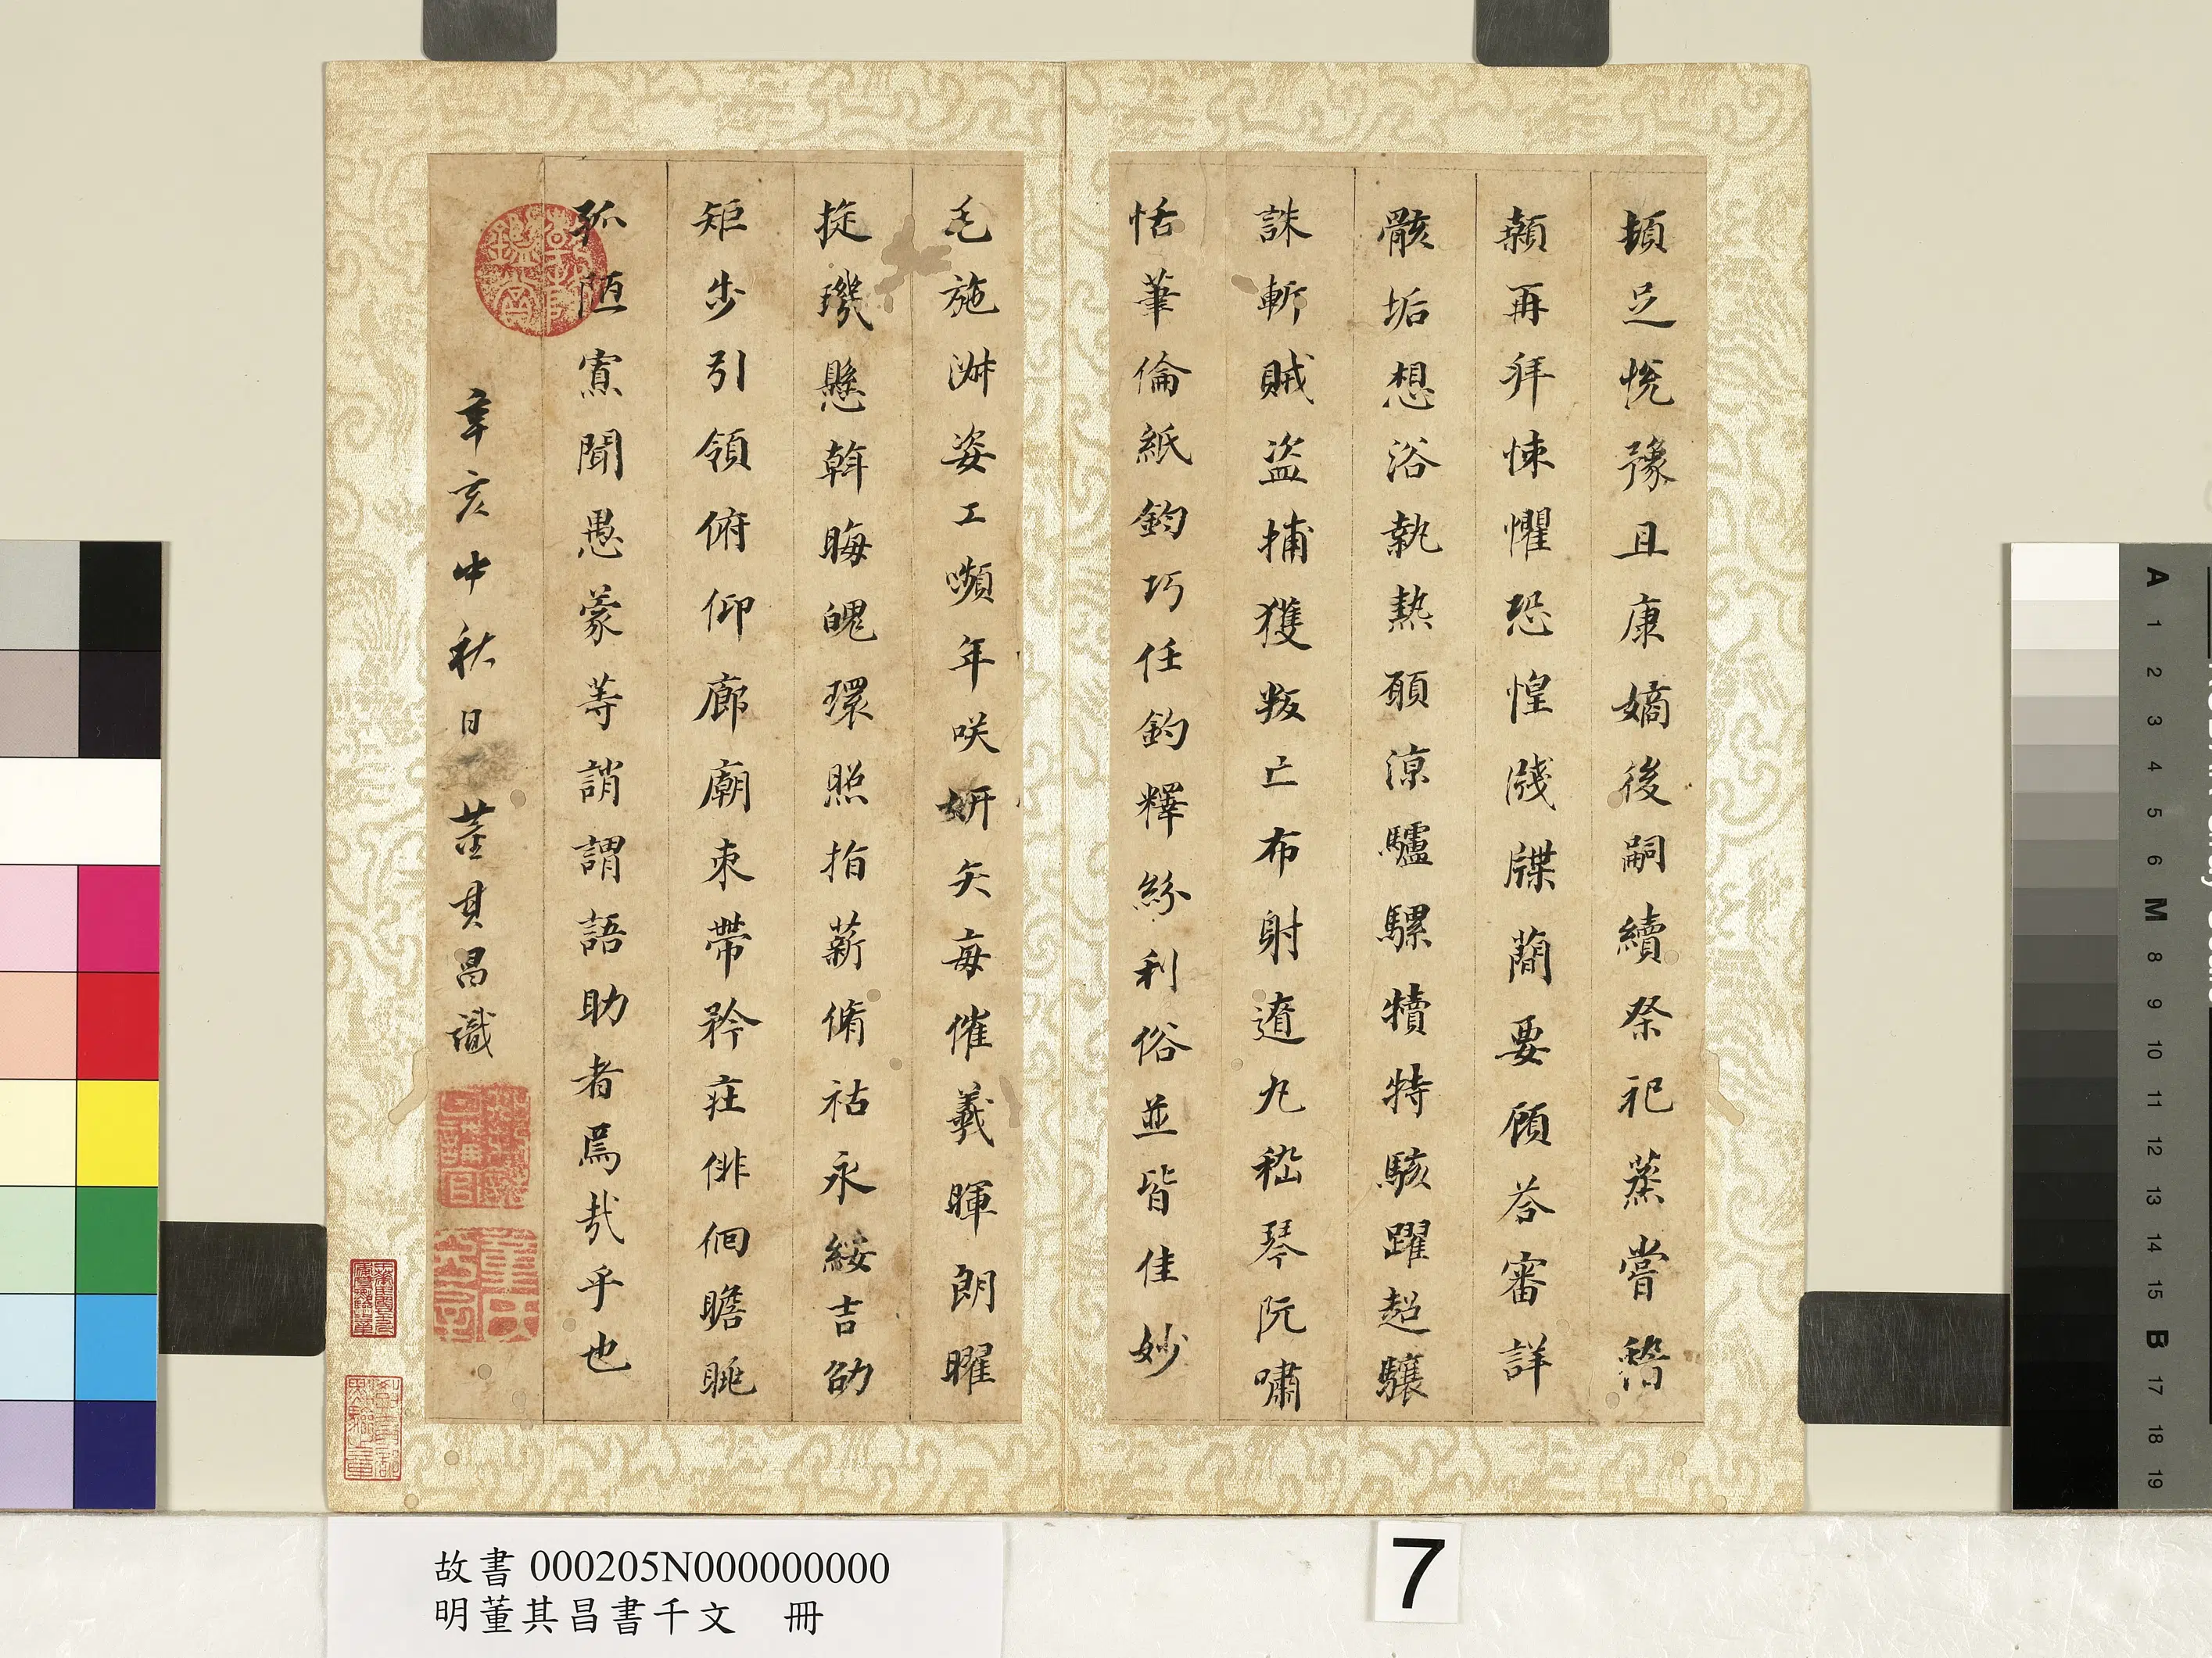 頓足悅豫且康嫡後嗣續祭祀蒸嘗稽
顙再拜悚懼恐惶牋牒蕳要顧荅審詳
骸垢想浴執熱願涼驢騾犢特駭躍超驤
誅斬賊盜捕獲叛亡布射遼丸嵇琴阮嘯
恬筆倫紙鈞巧任釣釋紛利俗並皆佳妙
毛施淑姿工嚬年咲妍矢每催羲暉朗曜
㨁璣懸斡晦魄環照指薪脩祜永綏吉劭
矩步引領俯仰廊廟束帶矜莊俳佪瞻眺
孤陋寡聞愚蒙等誚謂語助者焉哉乎也
辛亥中秋日 董其昌識
董氏
故書 000205N000000000
明董其昌書千文 冊
7
A 1 2 3 4 5 6 M 8 9 10 11 12 13 14 15 B 17 18 19